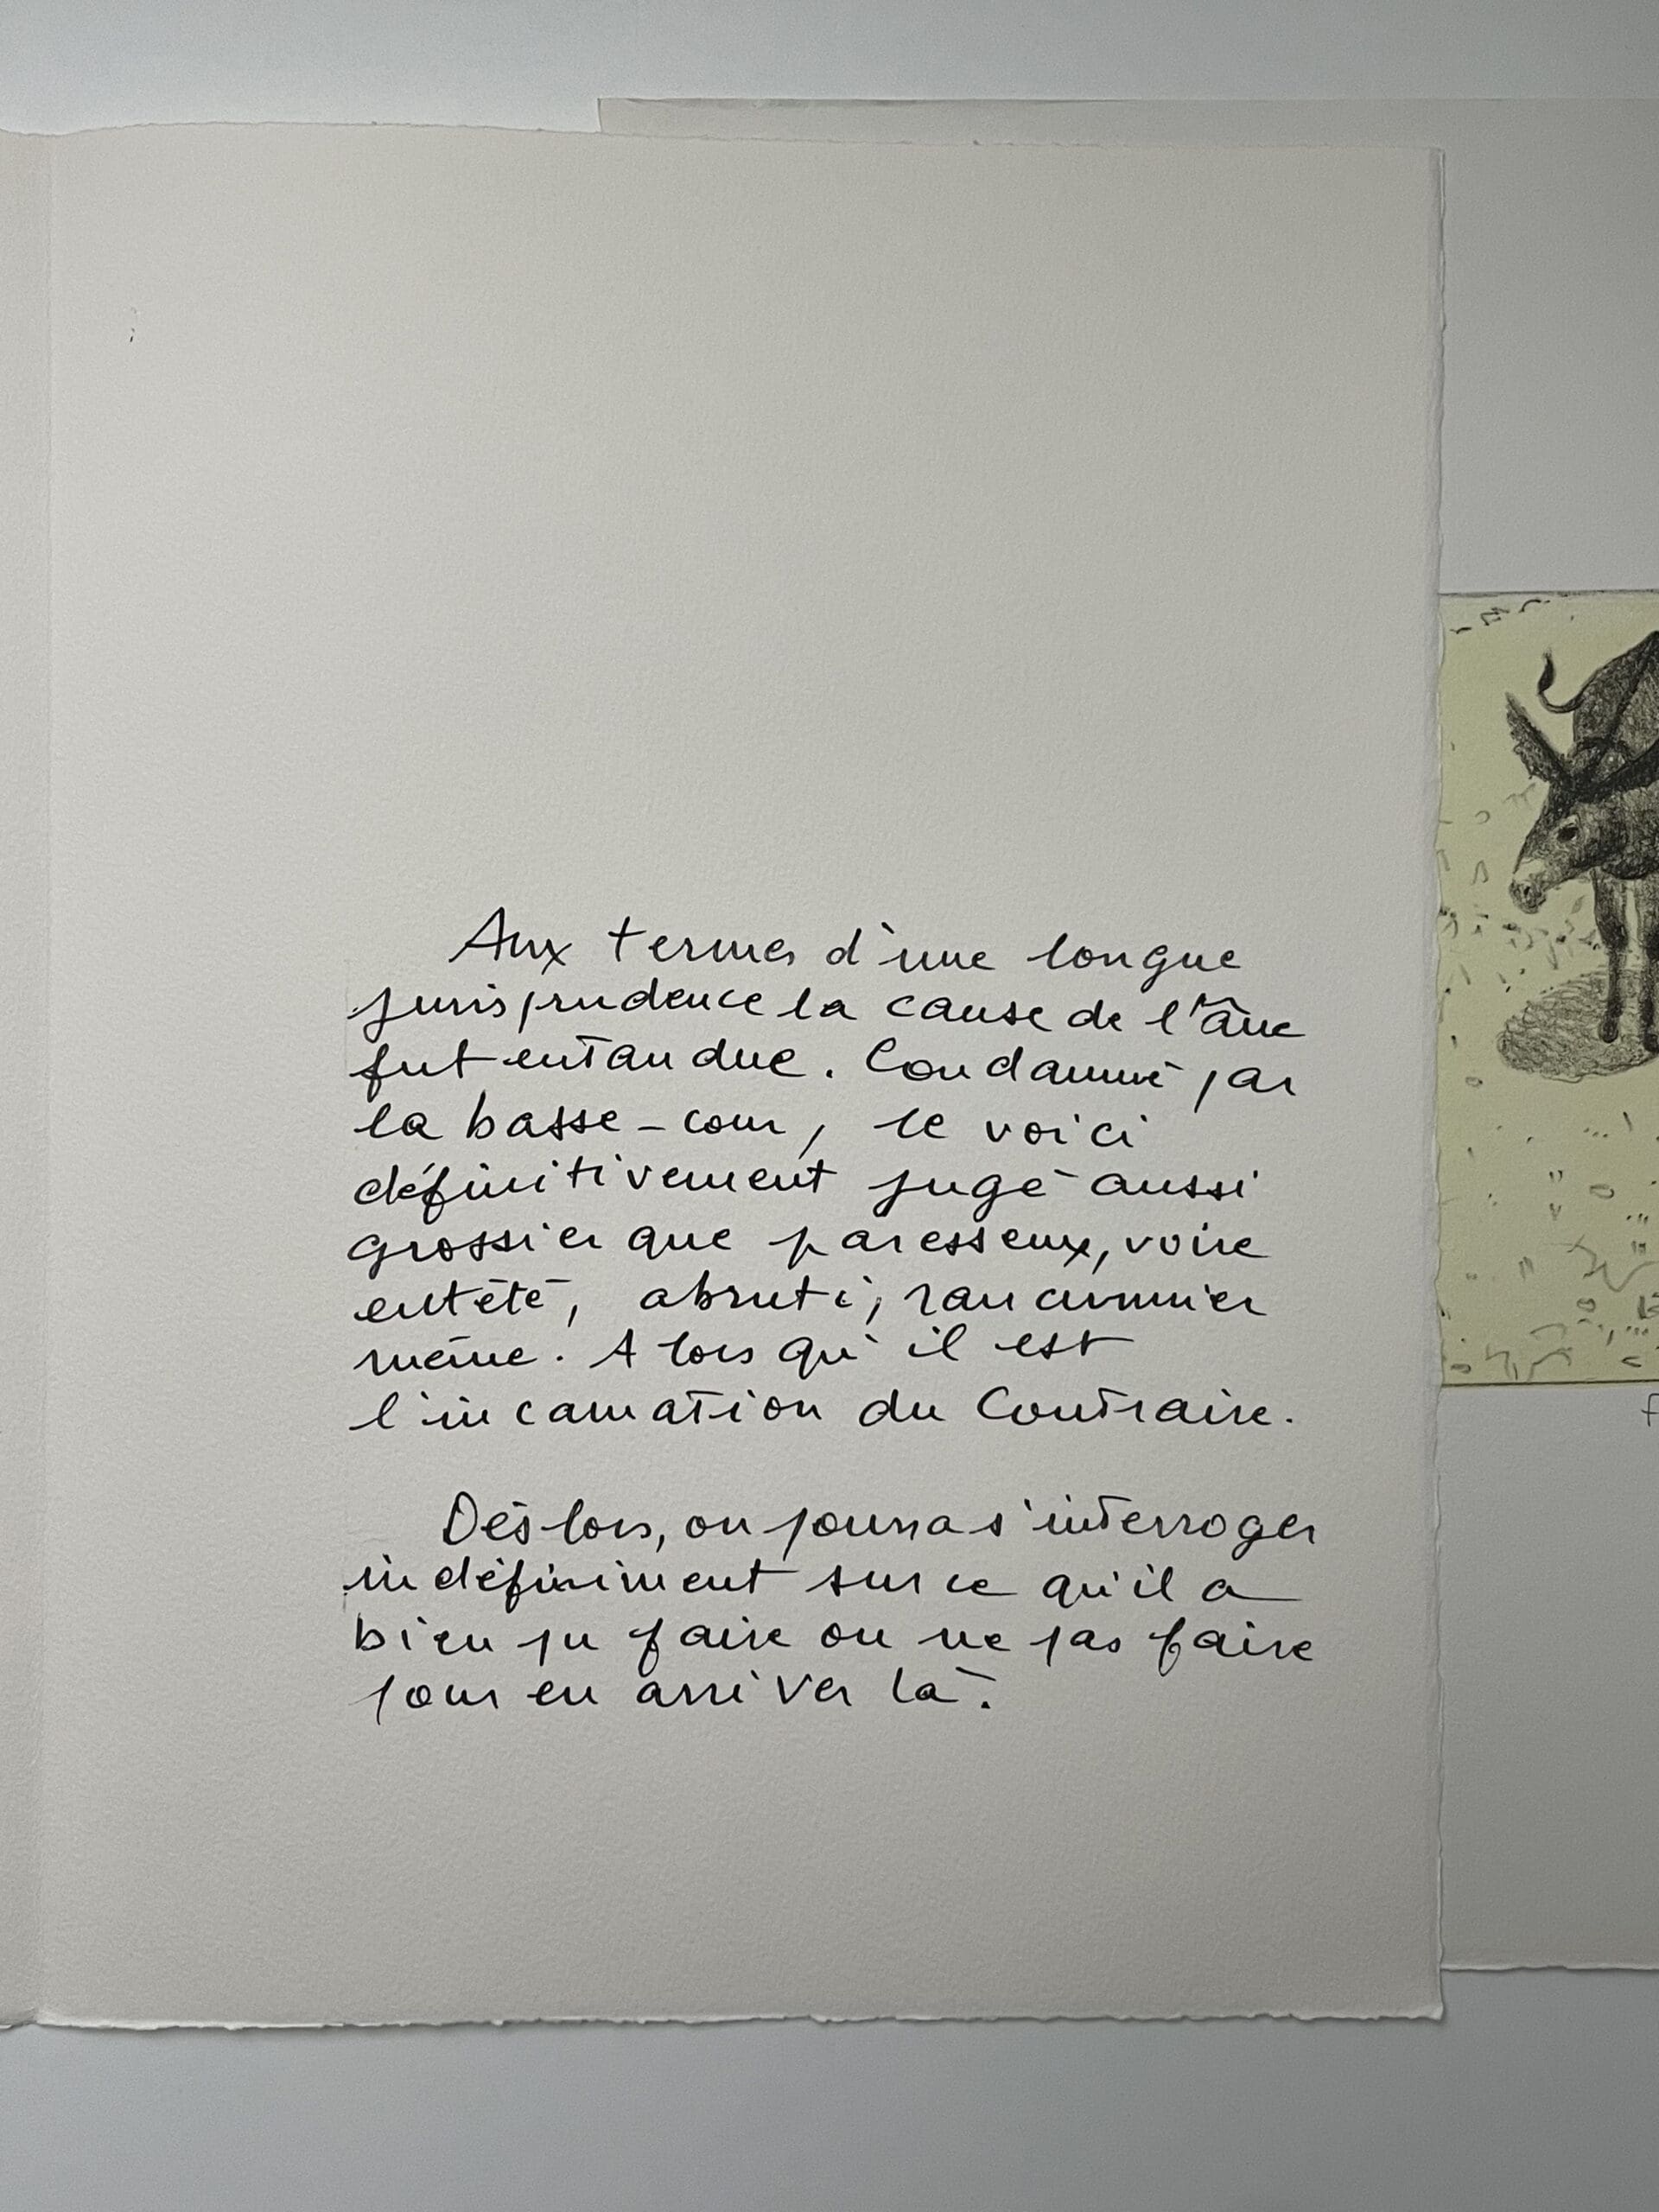 Aux termes d'une longue
jurisprudence la cause de l'âne
fut entandue. Condamné par
la basse-cour, le voici
définitivement jugé aussi
grossier que paresseux, voire
entêté, abruti, rancunnier
même. Alors qu'il est
l'incarnation du Contraire.
Dès lors, on pourra s'interroger
indéfiniment sur ce qu'il a
bien pu faire ou ne pas faire
pour en arriver là.